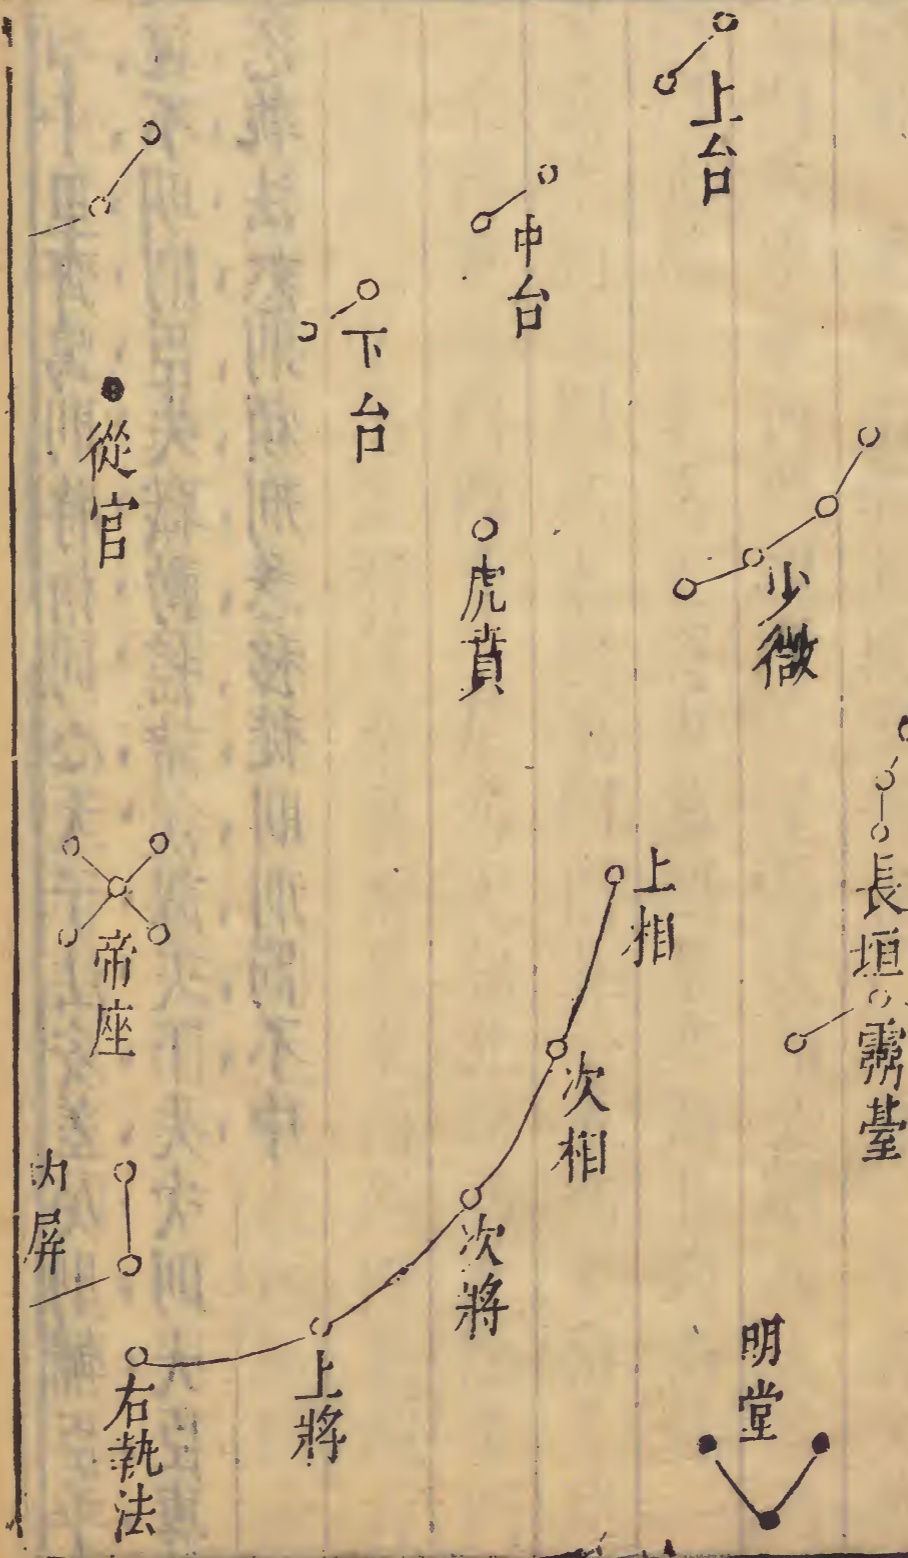 上台
中台
下台
少微
從官
虎賁
長垣
靈臺
上相
次相
次將
上將
右執法
帝座
内屏
明堂